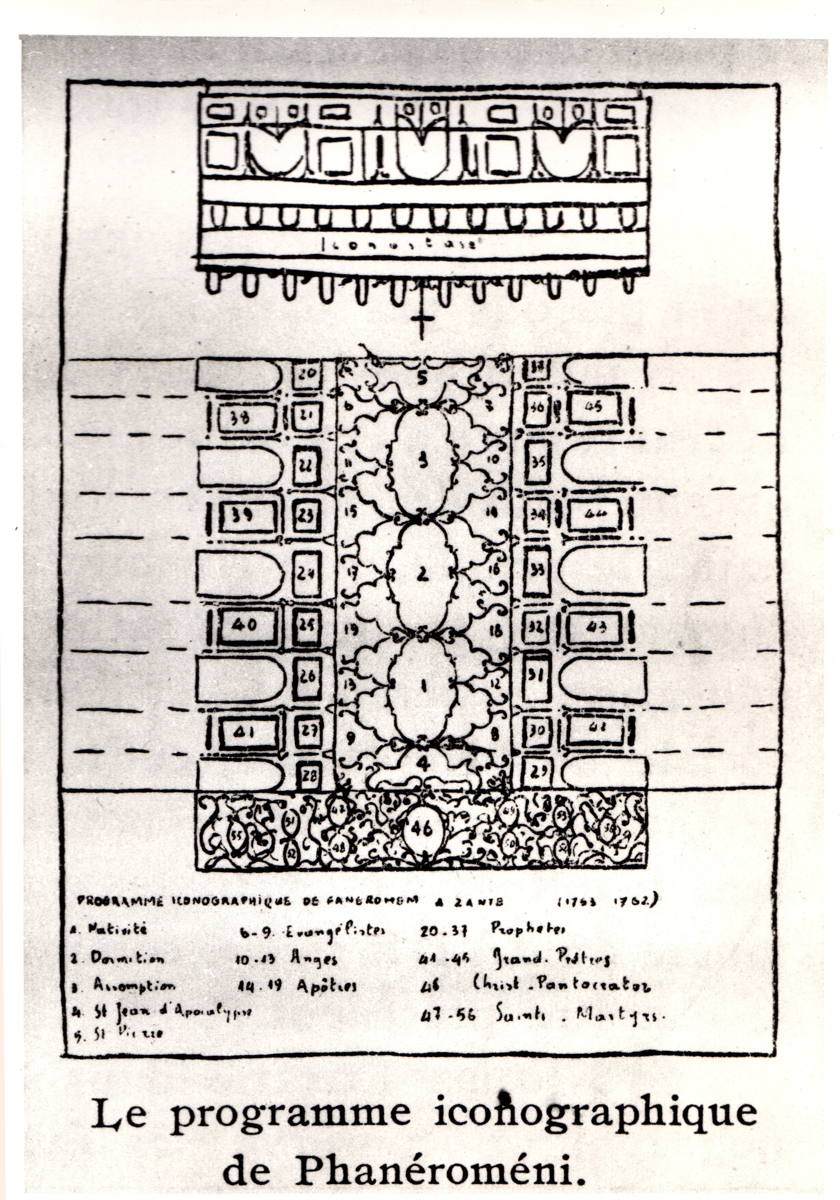 Iconostase
20 5 37
38 21 6 7 36 45
22 11 3 10 35
39 23 15 14 34 44
24 17 2 16 33
40 25 19 18 32 43
26 13 1 12 31
41 27 9 8 30
28 4 29
55 51 47 46 49 53 56
52 48 50
PROGRAMME ICONOGRAPHIQUE DE FANEROMEM A ZANTE (1753 1762)
1. Nativité 6-9. Evangélistes 20-37 Prophetes
2. Dormition 10-13 Anges 41-45 Grand. Prêtres
3. Assomption 14-19 Apôtres 46 Christ-Pantocrator
4. St Jean d'Apocalypse 47-56 Saints. Martyrs.
5. St Pierre
Le programme iconographique
de Phanéroméni.